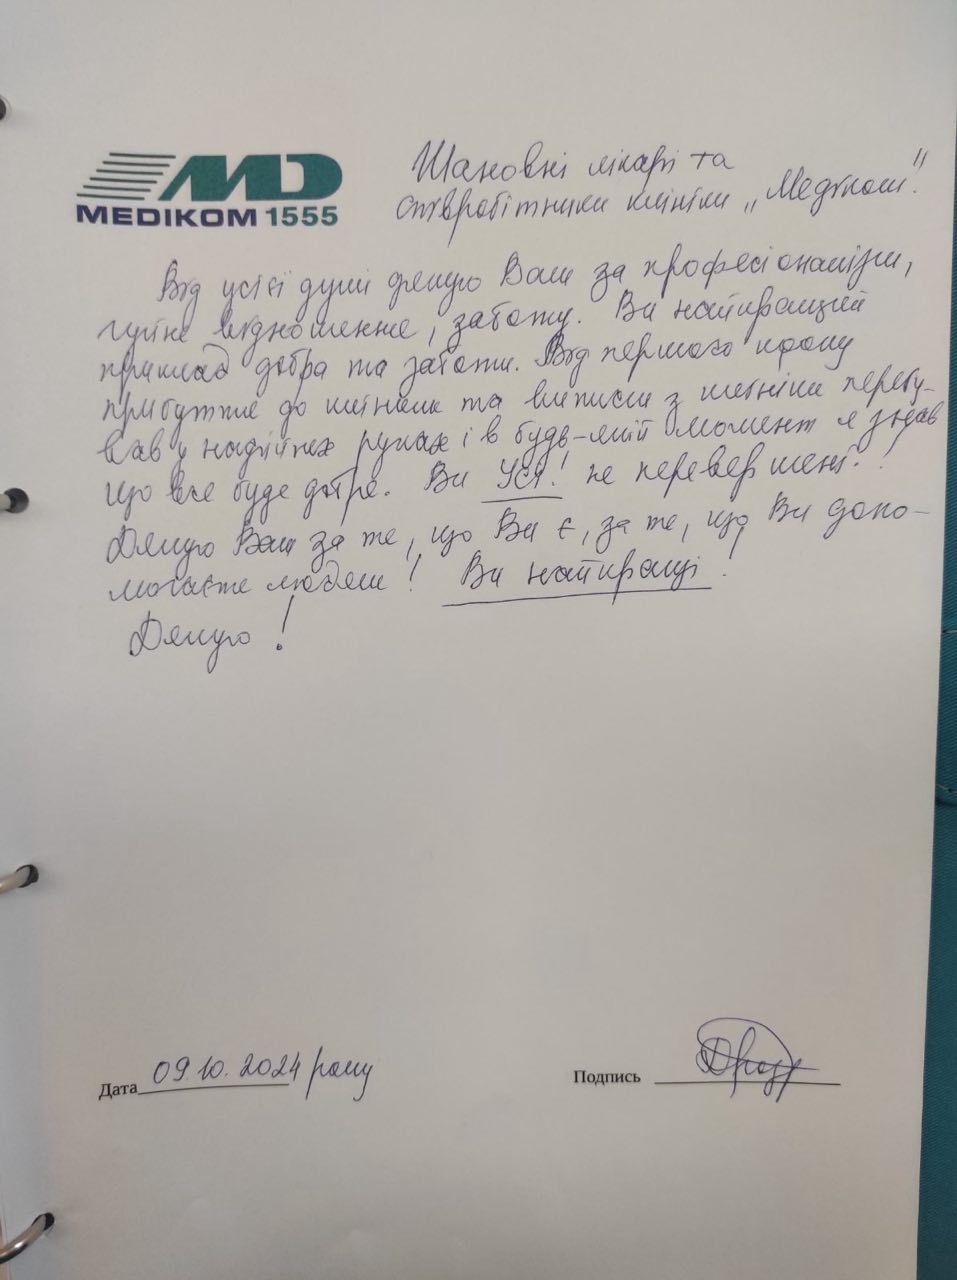 MD
MEDIKOM 1555
Шановні лікарі та
співробітники клініки „Медіком"!
Від усієї душі дякую Вам за професіоналізм,
чуйне відношення, заботу. Ви найкращий
приклад добра та заботи. Від першого кроку
прибуття до клініки та виписки з клініки перебу-
вав у надійних руках і в будь-який момент я знав
що все буде добре. Ви Усі! не перевершені!
Дякую Вам за те, що Ви є, за те, що Ви допо-
могаєте людям! Ви найкращі!
Дякую!
Дата 09.10.2024 року
Подпись